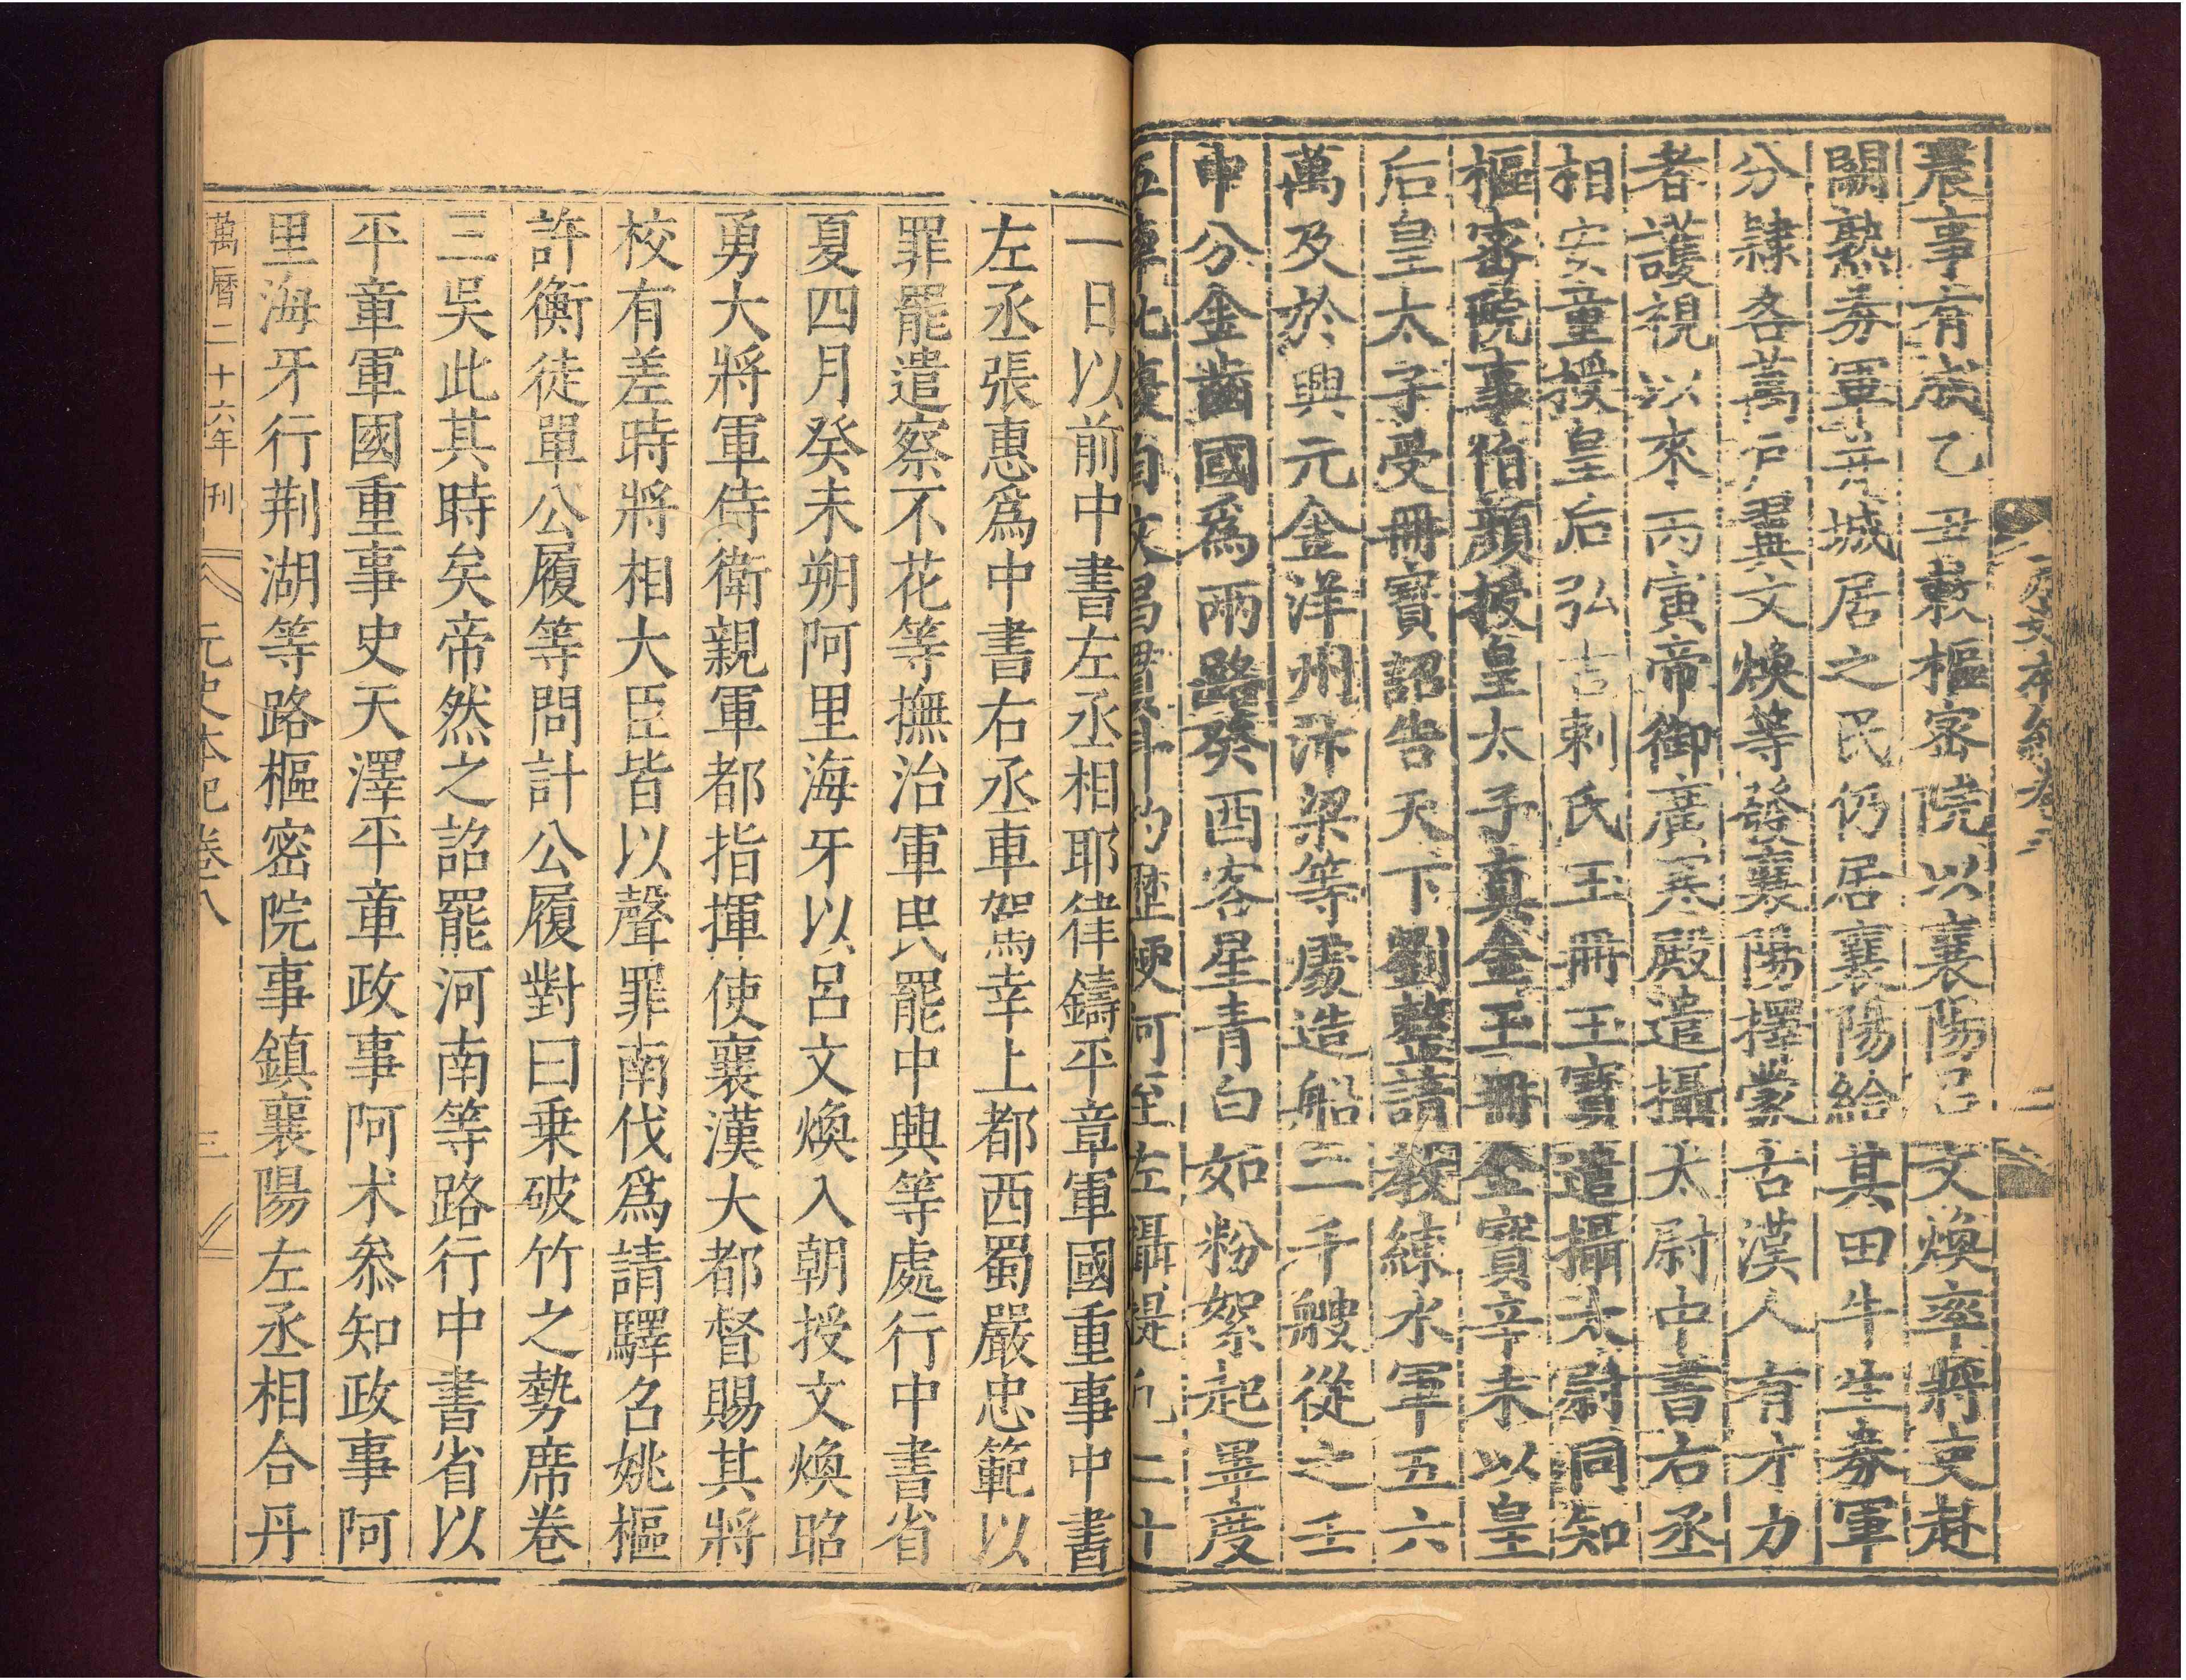 元史本紀卷八
二
農事有成乙丑敕樞密院以襄陽呂文煥率將吏赴
闕熟券軍并城居之民仍居襄陽給其田牛生券軍
分隸各萬戶翼文煥等發襄陽擇蒙古漢人有才力
者護視以來丙寅帝御廣寒殿遣攝太尉中書右丞
相安童授皇后弘吉剌氏玉冊玉寶遣攝太尉同知
樞密院事伯顏授皇太子真金玉冊金寶辛未以皇
后皇太子受冊寶詔告天下劉整請教練水軍五六
萬及於興元金洋州汴梁等處造船二千艘從之壬
申分金齒國爲兩路癸酉客星青白如粉絮起畢度
五車北復自文昌貫斗杓歷梗河至左攝提凡二十
一日以前中書左丞相耶律鑄平章軍國重事中書
左丞張惠爲中書右丞車駕幸上都西蜀嚴忠範以
罪罷遣察不花等撫治軍民罷中興等處行中書省
夏四月癸未朔阿里海牙以呂文煥入朝授文煥昭
勇大將軍侍衛親軍都指揮使襄漢大都督賜其將
校有差時將相大臣皆以聲罪南伐爲請驛召姚樞
許衡徒單公履等問計公履對曰乗破竹之勢席卷
三吳此其時矣帝然之詔罷河南等路行中書省以
平章軍國重事史天澤平章政事阿术叅知政事阿
里海牙行荆湖等路樞密院事鎮襄陽左丞相合丹
萬曆二十六年刊
元史本紀卷八
三